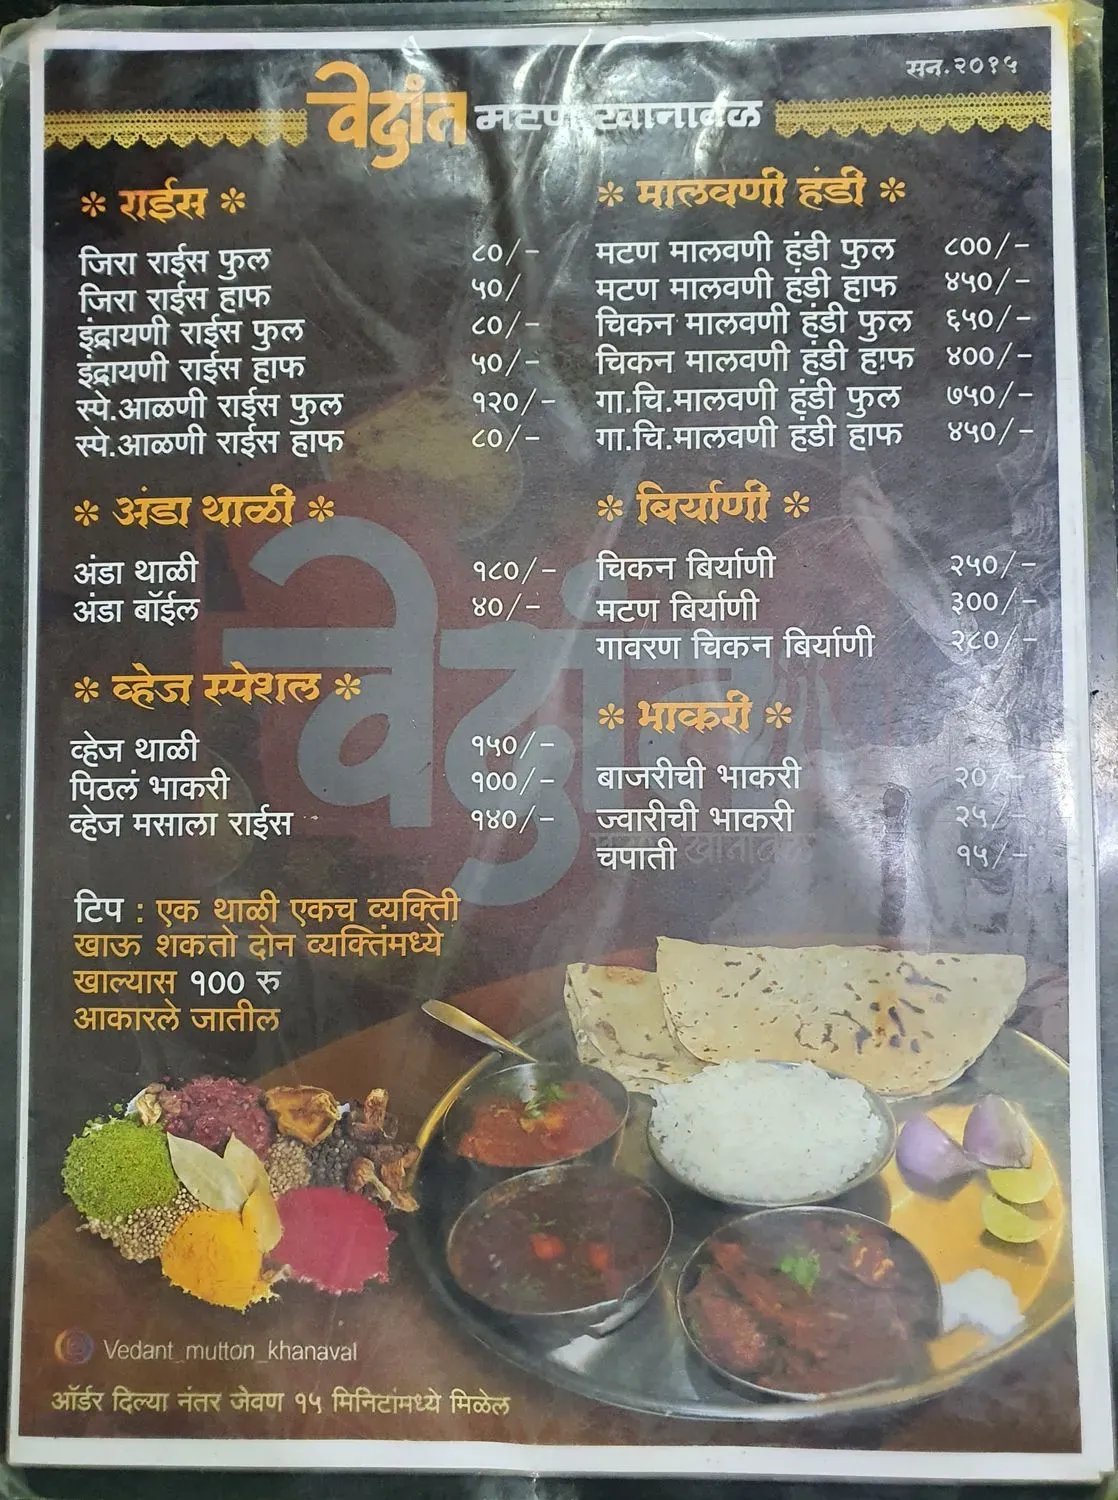 सन.२०१५
वेदांत मटण खानावळ
* राईस *
जिरा राईस फुल ८०/-
जिरा राईस हाफ ५०/
इंद्रायणी राईस फुल ८०/-
इंद्रायणी राईस हाफ ५०/-
स्पे.आळणी राईस फुल १२०/-
स्पे.आळणी राईस हाफ ८०/-
* अंडा थाळी *
अंडा थाळी १८०/-
अंडा बॉईल ४०/-
* व्हेज स्पेशल *
व्हेज थाळी १५०/-
पिठलं भाकरी १००/-
व्हेज मसाला राईस १४०/-
* मालवणी हंडी *
मटण मालवणी हंडी फुल ८००/-
मटण मालवणी हंडी हाफ ४५०/-
चिकन मालवणी हंडी फुल ६५०/-
चिकन मालवणी हंडी हाफ ४००/-
गा.चि.मालवणी हंडी फुल ७५०/-
गा.चि.मालवणी हंडी हाफ ४५०/-
* बिर्याणी *
चिकन बिर्याणी २५०/-
मटण बिर्याणी ३००/-
गावरण चिकन बिर्याणी २८०/-
* भाकरी *
बाजरीची भाकरी २०/-
ज्वारीची भाकरी २५/-
चपाती १५/-
वेदांत
मटण खानावळ
टिप : एक थाळी एकच व्यक्तिी
खाऊ शकतो दोन व्यक्तिंमध्ये
खाल्यास १०० रु
आकारले जातील
Vedant_mutton_khanaval
ऑर्डर दिल्या नंतर जेवण १५ मिनिटांमध्ये मिळेल